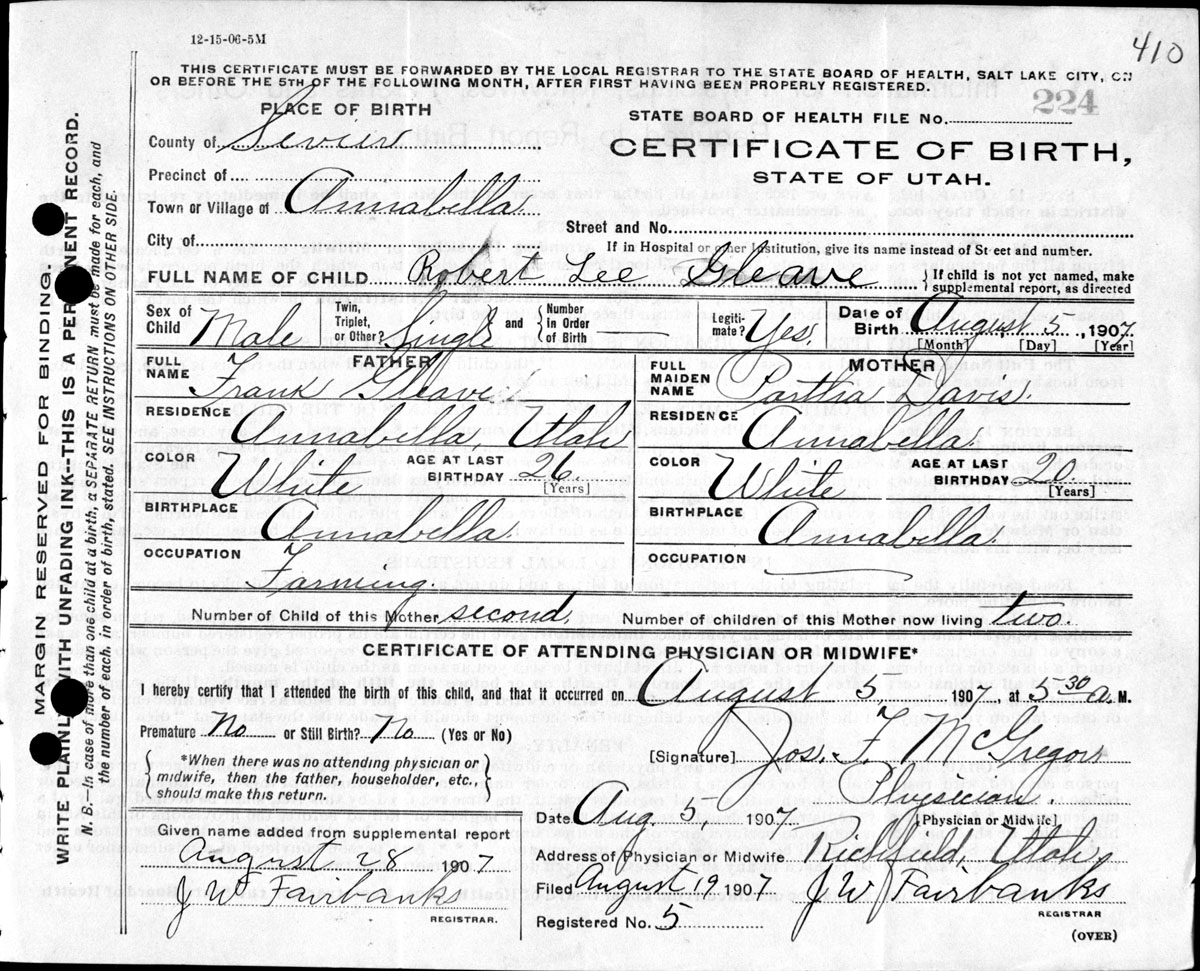 12-15-06-5M
410
THIS CERTIFICATE MUST BE FORWARDED BY THE LOCAL REGISTRAR TO THE STATE BOARD OF HEALTH, SALT LAKE CITY, ON
OR BEFORE THE 5TH OF THE FOLLOWING MONTH, AFTER FIRST HAVING BEEN PROPERLY REGISTERED.
224
PLACE OF BIRTH
STATE BOARD OF HEALTH FILE No.
County of Sevier
CERTIFICATE OF BIRTH,
STATE OF UTAH.
Precinct of
Town or Village of Annabella.
Street and No.
City of
If in Hospital or other Institution, give its name instead of Street and number.
FULL NAME OF CHILD Robert Lee Gleave { If child is not yet named, make
supplemental report, as directed
Sex of Child Male Twin, Triplet, or Other? Single and { Number in Order of Birth — Legiti-mate? Yes. Date of Birth August 5, 1907.
[Month] [Day] [Year]
FATHER
FULL NAME Frank Gleave.
RESIDENCE Annabella, Utah
COLOR White AGE AT LAST BIRTHDAY 26.
[Years]
BIRTHPLACE Annabella.
OCCUPATION Farming.
MOTHER
FULL MAIDEN NAME Partha Davis.
RESIDENCE Annabella.
COLOR White AGE AT LAST BIRTHDAY 20.
[Years]
BIRTHPLACE Annabella.
OCCUPATION —
Number of Child of this Mother second, Number of children of this Mother now living two.
CERTIFICATE OF ATTENDING PHYSICIAN OR MIDWIFE*
I hereby certify that I attended the birth of this child, and that it occurred on August 5 1907, at 5 30 a M.
Premature No or Still Birth? No (Yes or No)
{ *When there was no attending physician or
midwife, then the father, householder, etc.,
should make this return. }
[Signature] Jos. F. McGregor
Physician.
[Physician or Midwife]
Date Aug 5 1907.
Given name added from supplemental report
August 28 1907
J W Fairbanks
REGISTRAR.
Address of Physician or Midwife Richfield, Utah,
Filed August 19 1907 J W Fairbanks
REGISTRAR
Registered No. 5
(OVER)
MARGIN RESERVED FOR BINDING.
WRITE PLAINLY WITH UNFADING INK--THIS IS A PERMANENT RECORD.
N. B.--In case of more than one child at a birth, a SEPARATE RETURN must be made for each, and
the number of each. in order of birth, stated. SEE INSTRUCTIONS ON OTHER SIDE.